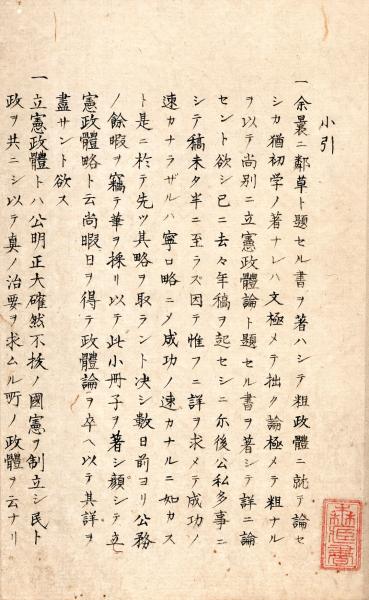 小引
一余曩ニ鄰草ト題セル書ヲ著ハシテ粗政體ニ就テ論セ
シカ猶初学ノ著ナレハ文極メテ拙ク論極メテ粗ナル
ヲ以テ尚別ニ立憲政體論ト題セル書ヲ著シテ詳ニ論
セント欲シ已ニ去々年稿ヲ起セシニ尓後公私多事ニ
シテ稿未タ半ニ至ラズ因テ惟フニ詳ヲ求メテ成功ノ
速カナラザルハ寧ロ略ニメ成功ノ速カナルニ如カス
ト是ニ於テ先ツ其略ヲ取ラント决シ數日前ヨリ公務
ノ餘暇ヲ竊テ筆ヲ採リ以テ此小冊子ヲ著シ顔シテ立
憲政體略ト云尚暇日ヲ得テ政體論ヲ卒ヘ以テ其詳ヲ
盡サント欲ス
一立憲政體トハ公明正大確然不拔ノ國憲ヲ制立シ民ト
政ヲ共ニシ以テ真ノ治要ヲ求ムル所ノ政體ヲ云ナリ